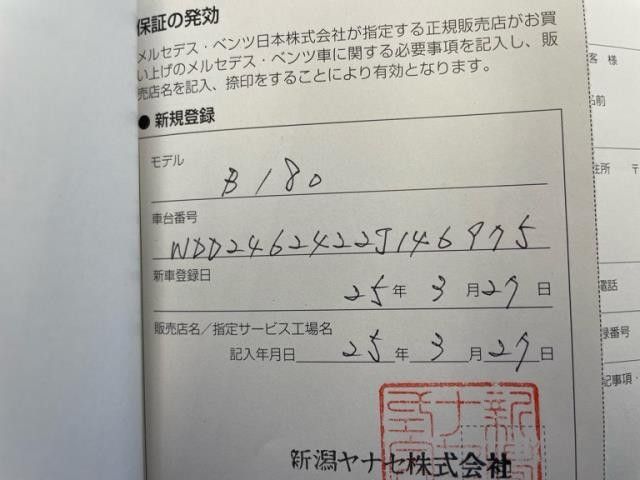 保証の発効
メルセデス・ベンツ日本株式会社が指定する正規販売店がお買
い上げのメルセデス・ベンツ車に関する必要事項を記入し、販
売店名を記入、捺印をすることにより有効となります。
● 新規登録
モデル
B180
車台番号
WDD2462422J146975
新車登録日
25年 3月27日
販売店名／指定サービス工場名
記入年月日 25年 3月27日
新潟ヤナセ株式会社
客 様
名前
住所 〒
電話
録番号
記事項・